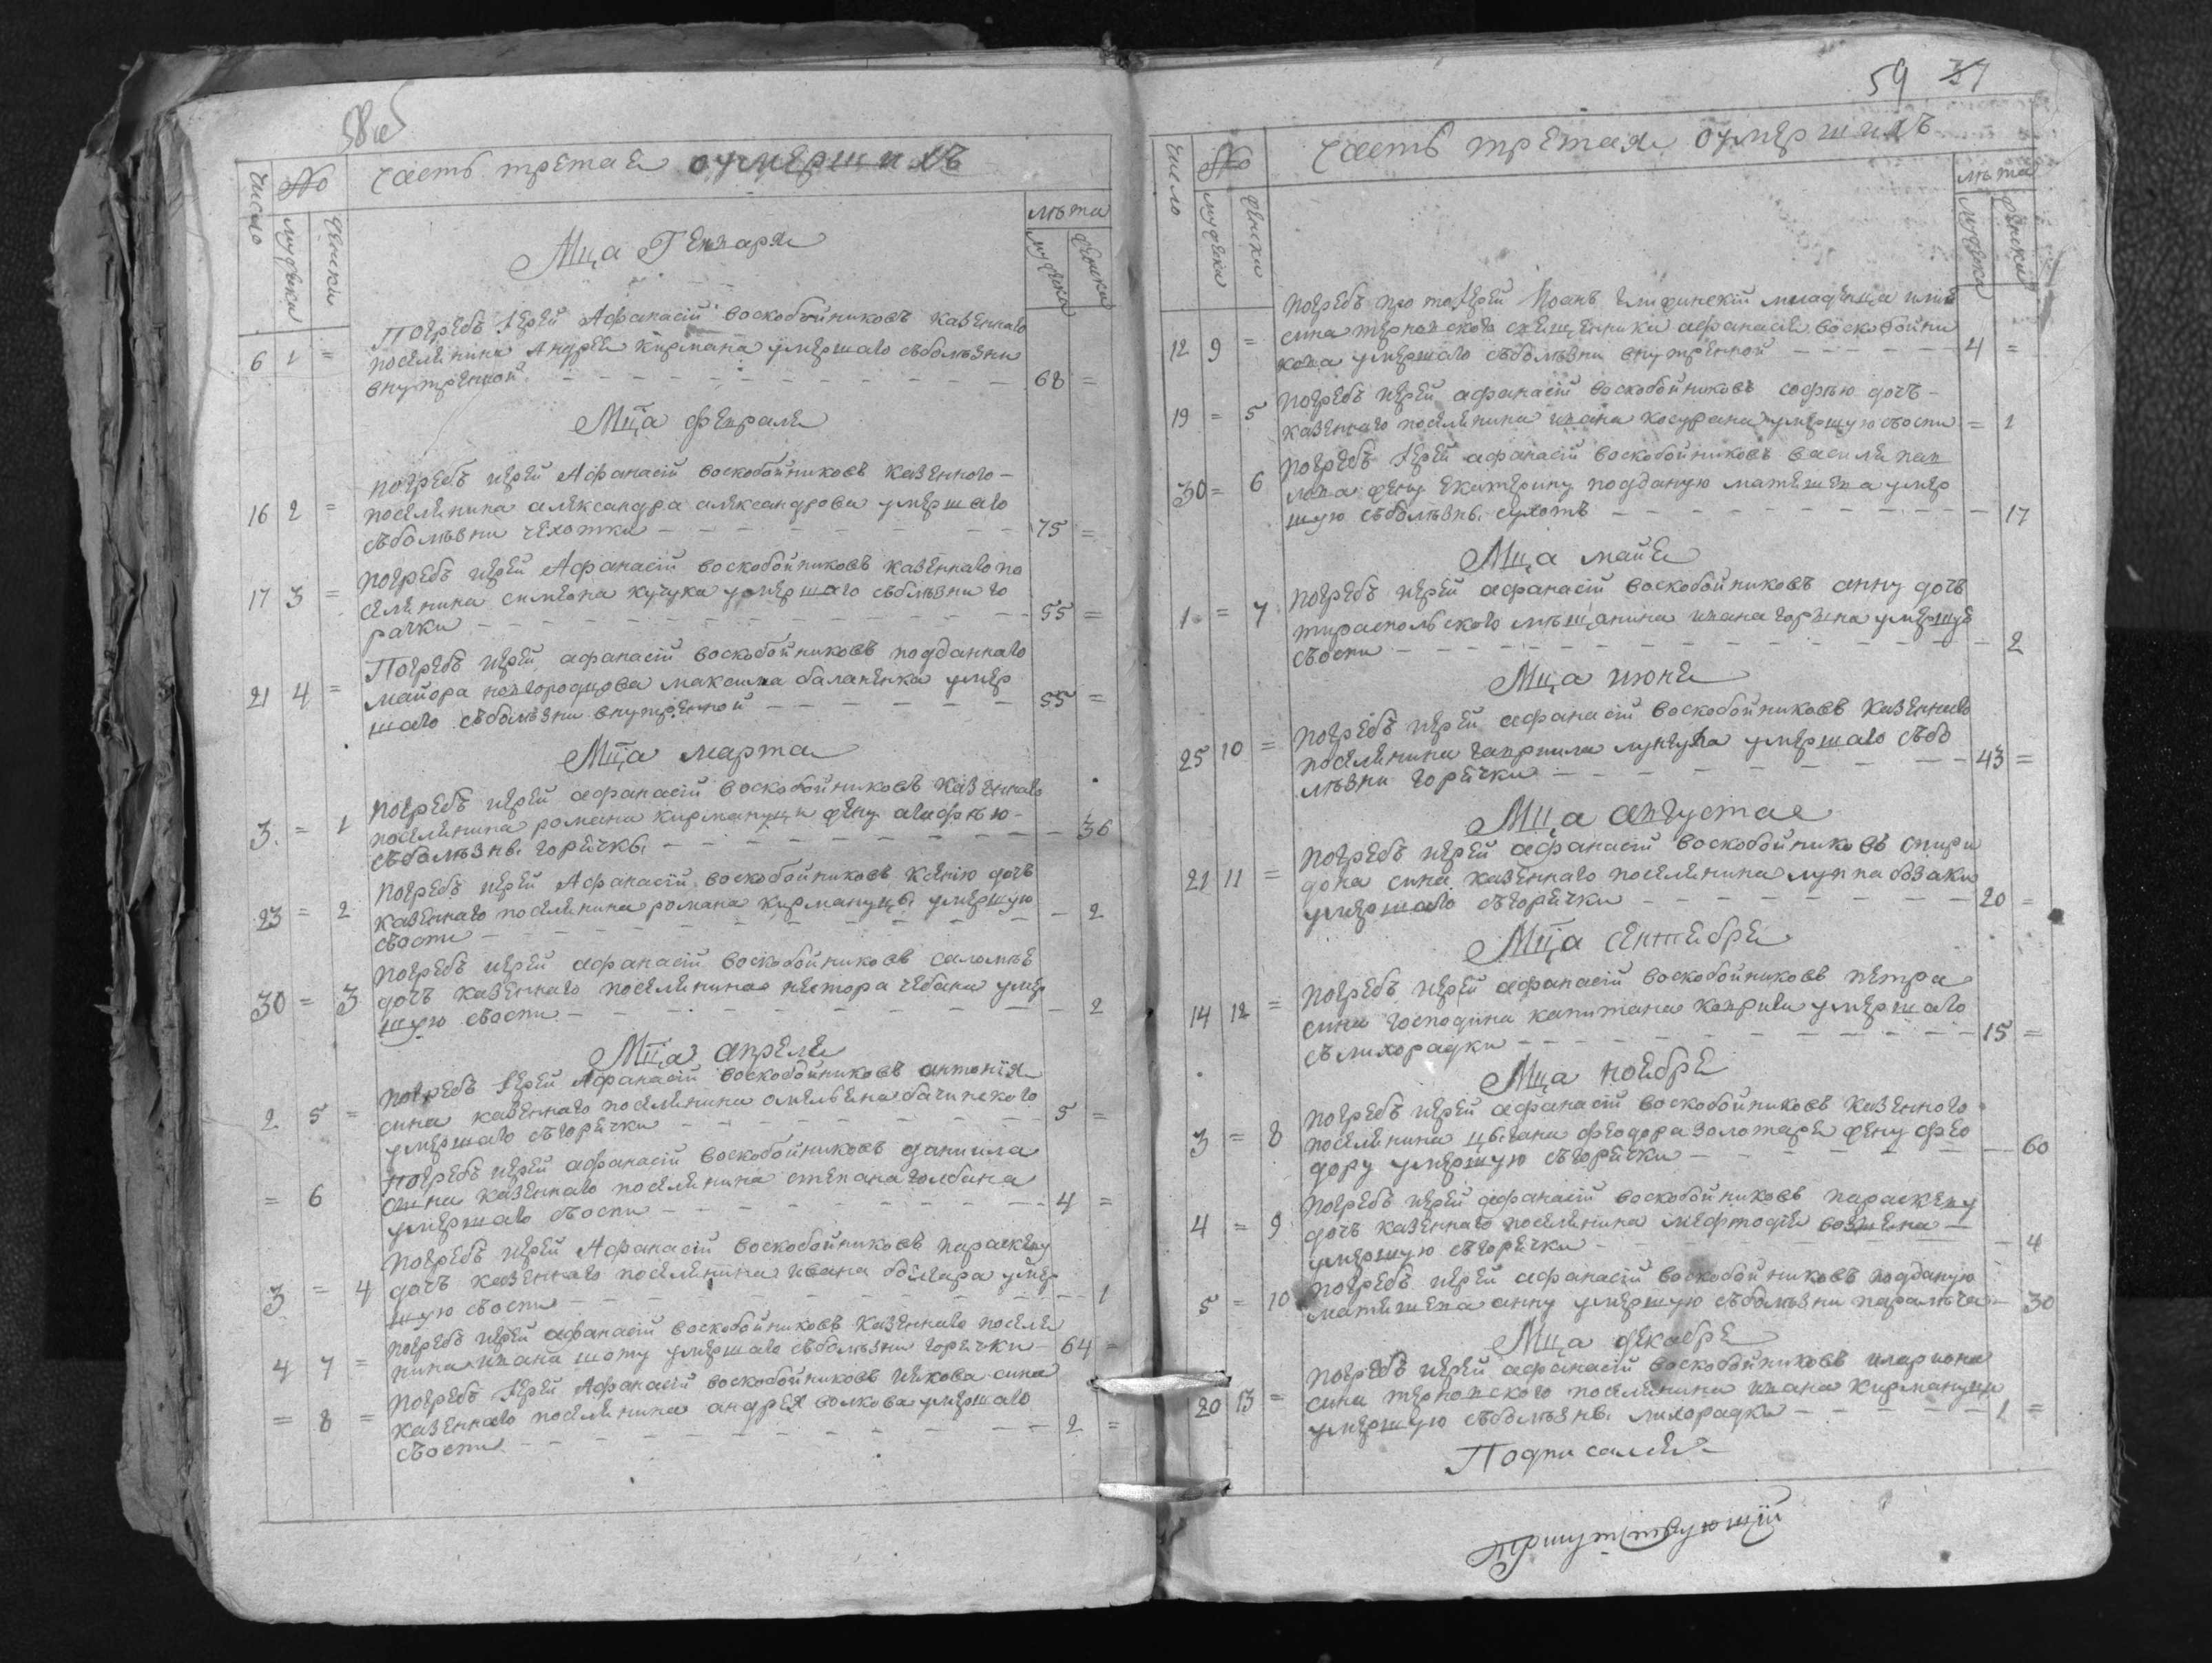 58об
число
№
мужеска
женски
часть третая оумершихъ
лѣта
мужеска
женски
Мца Генваря
Погребъ іерей Афанасій воскобойниковъ казеннаго
6 1 = поселянина Андрея кирмана умершаго съболѣзни
внутренной 68 =
Мца февраля
погребъ иерей Афанасій воскобойниковъ казенного
16 2 = поселянина александра александрова умершаго
съболѣзни чехотки 75 =
погребъ иерей Афанасій воскобойниковъ казеннаго по
17 3 = селянина симеона кучука умершаго съболѣзни го
рачки 55 =
Погребъ иерей афанасій воскобойниковъ подданнаго
21 4 = майора новгородцова максима баланенка умер
шаго съболѣзни внутренной 55 =
Мца марта
погребъ иерей афанасій воскобойниковъ казеннаго
3 = 1 поселянина романа кирмануцы жену агафѣю
съболѣзны горячкы 36
погребъ иерей Афанасій воскобойниковъ ксенію дочъ
23 = 2 казеннаго поселянина романа кирмануцы умершую
съоспи 2
погребъ иерей афанасій воскобойниковъ саломѣю
30 = 3 дочъ казеннаго поселянина нестора чебана умер
шую съоспи 2
Мца апреля
погребъ іерей Афанасій воскобойниковъ антонія
2 5 = сина казеннаго поселянина омельяна бачинского
умершаго съгорячки 5 =
погребъ иерей афанасій воскобойниковъ даниила
= 6 сина казеннаго поселянина степана голбана
умершаго съоспи 4 =
погребъ иерей Афанасій воскобойниковъ параскеву
3 = 4 дочъ казеннаго поселянина ивана болгара умер
шую съоспи 1
погребъ иерей афанасій воскобойниковъ казеннаго поселя
4 7 = нина ивана шоту умершаго съболѣзни горячки 64 =
погребъ іерей Афанасій воскобойниковъ иякова сина
= 8 = казеннаго поселянина андрея волкова умершаго
съоспи 2 =
59 37
число
№
мужеска
женски
часть третая оумершихъ
лѣта
мужеска
женски
погребъ протоіерей Иоанъ младенца
12 9 = сина терновского священника афанасія воскобойни
кова умершаго съболѣзни внутренной 4 =
погребъ иерей афанасій воскобойниковъ софѣю дочъ
19 = 5 казеннаго поселянина ивана косурана умершую съоспи = 1
погребъ іерей афанасій воскобойниковъ василя пав
30 = 6 лова жену екатерину подданую матяшева умер
шую съболѣзны сухотъ 17
Мца майя
погребъ иерей афанасій воскобойниковъ анну дочъ
1 = 7 тираспольского мѣщанина ивана умершую
съоспи 2
Мца июня
погребъ иерей афанасій воскобойниковъ казеннаго
25 10 = поселянина гавриила умершаго събо
лѣзни горячки 43 =
Мца августа
погребъ иерей афанасій воскобойниковъ спири
21 11 = дона сина казеннаго поселянина луппа бозаки
умершаго съгорячки 20 =
Мца сентября
погребъ иерей афанасій воскобойниковъ петра
14 12 = сина господина капитана умершаго
съ лихорадки 15 =
Мца ноября
погребъ иерей афанасій воскобойниковъ казенного
3 = 8 поселянина цыгана феодора золотаря жену фео
дору умершую съгорячки 60
погребъ иерей афанасій воскобойниковъ параскеву
4 = 9 дочъ казеннаго поселянина мефтодія
умершую съгорячки 4
погребъ иерей афанасій воскобойниковъ подданую
5 = 10 матяшева анну умершую съболѣзни паралѣча 30
Мца декабря
погребъ иерей афанасій воскобойниковъ илариона
20 13 = сина терновского поселянина ивана кирмануцы
умершую съболѣзны лихорадки 1 =
Подписался